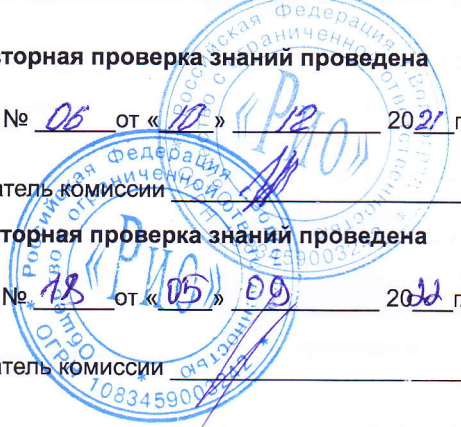 вторная проверка знаний проведена
№ 06 от « 10 » 12 2021 г
атель комиссии
торная проверка знаний проведена
№ 18 от « 05 » 09 2022 г.
атель комиссии
Российская Федерация
ограниченной ответственностью
«РИО»
Российская Федерация
Общество с ограниченной ответственностью
«РИО»
ОГРН 1083459003242